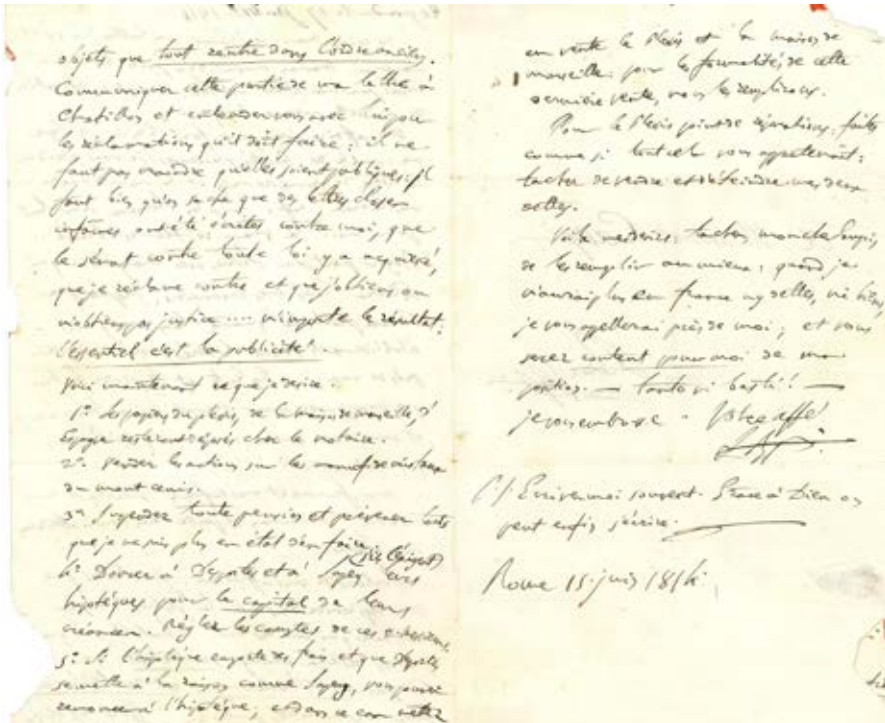 objets que tout rentre dans l'ordre ancien.
Communiquer cette partie de ma lettre à
Chatillon et entendez vous avec lui pour
les réclamations qu'il doit faire; il ne
faut pas craindre qu'elles soient publiques; il
faut bien qu'on sache que des lettres closes
infâmes ont été écrites contre moi, que
le sénat contre toute loi y a acquiescé,
que je réclame contre et que j'obtiens ou
n'obtiens pas justice n'importe le résultat:
l'essentiel c'est la publicité.
Voici maintenant ce que je désire.
1° Les papiers du plessis, de la maison de marseille, d'
Espagne resteront déposés chez le notaire.
2° vendre les actions sur les
du mont cenis.
3° Suspendre toute pension et prévenir tous
que je ne suis plus en état d'en faire.
4° Donner à et à leurs
hipotéques pour le capital de leurs
créances. Régler les comptes de ces
5° Si l'hipotéque emporte des frais et que
se mette à la raison comme vous pouvez
renoncer à l'hipotéque; et dans ce cas mettez
en vente le Plessis et la maison de
marseille: pour les formalités de cette
dernière vente, vous les remplirez.
Pour le Plessis point de réparations: faites
comme si tout cela vous appartenait:
tacher de vendre et d'éteindre mes deux
dettes.
Voilà mes désirs: tachez mon cher
de les remplir au mieux: quand je
n'aurai plus en france ny dettes, ni biens,
je vous appellerai près de moi; et vous
serez content pour moi de ma
position. — tanto vi basti! —
je vous embrasse. Votre affé
P.S. Ecrivez moi souvent. Grace à Dieu on
peut enfin s'écrire.
Rome 15. juin 1814.